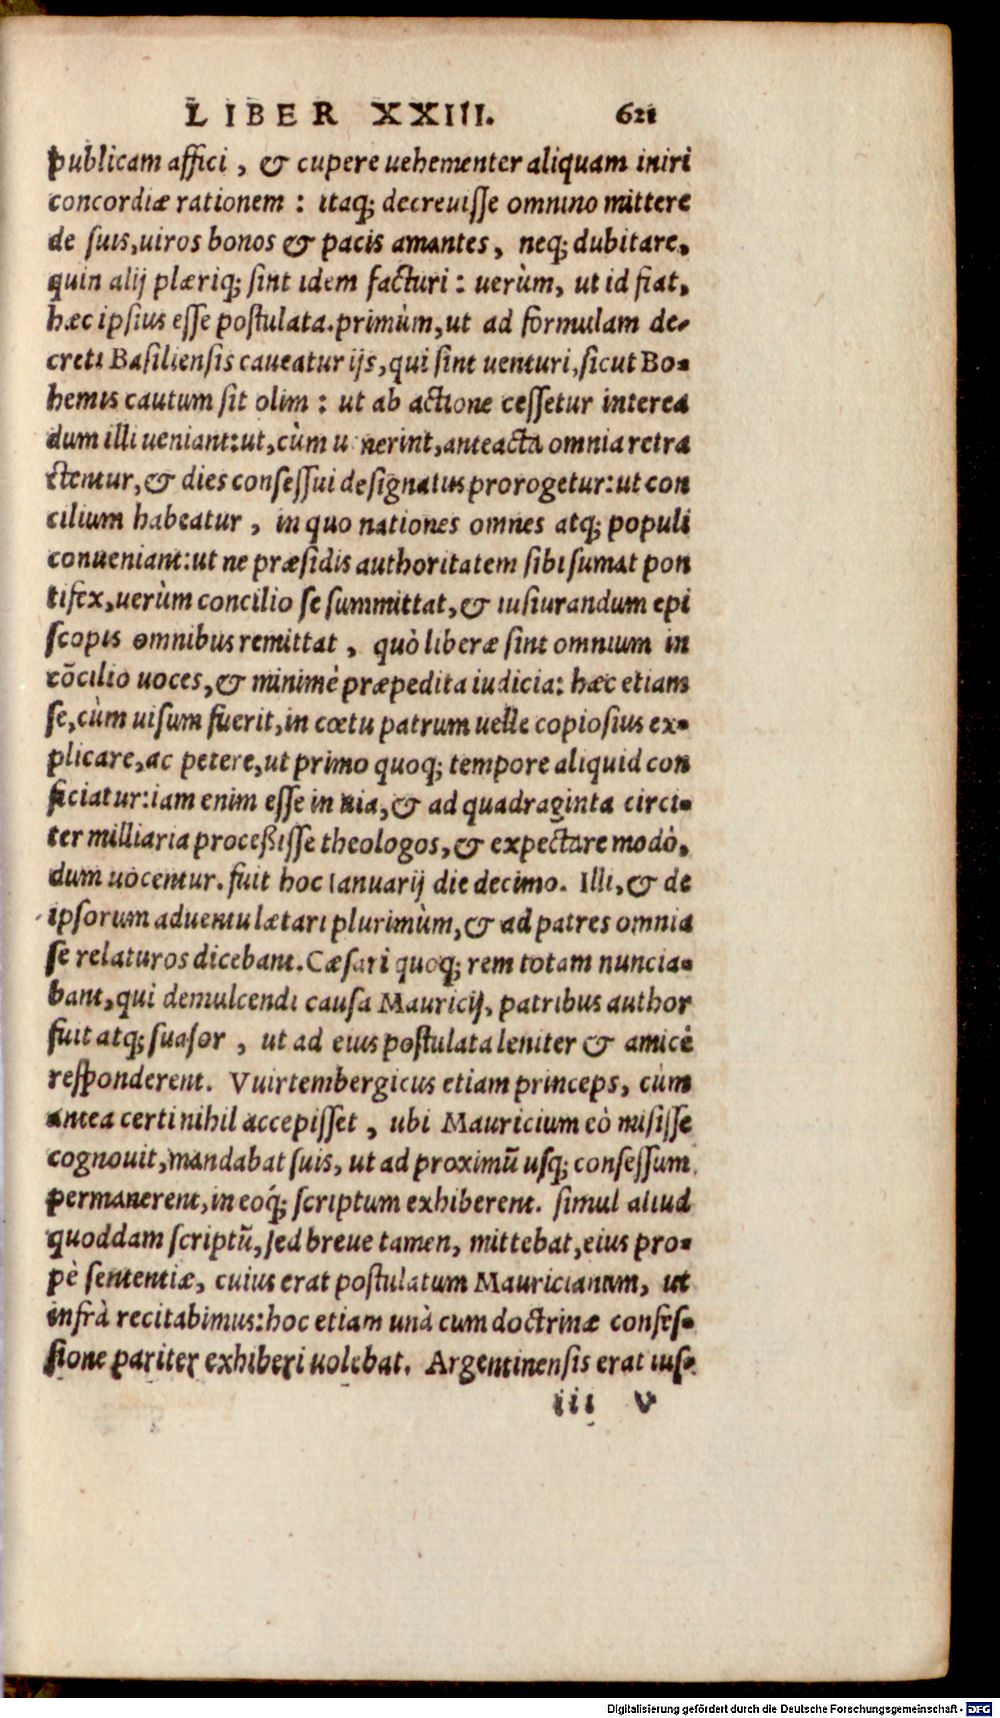 LIBER XXIII. 621
publicam affici, & cupere uehementer aliquam iniri
concordiæ rationem: itaq; decreuisse omnino mittere
de suis, uiros bonos & pacis amantes, neq; dubitare,
quin alij plæriq; sint idem facturi: uerùm, ut id fiat,
hæc ipsius esse postulata. primùm, ut ad formulam de-
creti Basiliensis caueatur ijs, qui sint uenturi, sicut Bo-
hemis cautum sit olim: ut ab actione cessetur interea
dum illi ueniant: ut, cùm u nerint, anteacta omnia retra
ctentur, & dies consessui designatus prorogetur: ut con
cilium habeatur, in quo nationes omnes atq; populi
conueniant: ut ne præsidis authoritatem sibi sumat pon
tifex, uerùm concilio se summittat, & iusiurandum epi
scopis omnibus remittat, quò liberæ sint omnium in
cõcilio uoces, & minimè præpedita iudicia: hæc etiam
se, cùm uisum fuerit, in cœtu patrum uelle copiosius ex-
plicare, ac petere, ut primo quoq; tempore aliquid con
ficiatur: iam enim esse in uia, & ad quadraginta circi-
ter milliaria proceßisse theologos, & expectare modò,
dum uocentur. fuit hoc Ianuarij die decimo. Illi, & de
ipsorum aduentu lætari plurimùm, & ad patres omnia
se relaturos dicebant. Cæsari quoq; rem totam nuncia-
bant, qui demulcendi causa Mauricij, patribus author
fuit atq; suasor, ut ad eius postulata leniter & amicè
responderent. Vuirtembergicus etiam princeps, cùm
antea certi nihil accepisset, ubi Mauricium eò misisse
cognouit, mandabat suis, ut ad proximũ usq; consessum
permanerent, in eoq́; scriptum exhiberent. simul aliud
quoddam scriptũ, sed breue tamen, mittebat, eius pro-
pè sententiæ, cuius erat postulatum Mauricianum, ut
infrà recitabimus: hoc etiam unà cum doctrinæ confes-
sione pariter exhiberi uolebat. Argentinensis erat ius-
iii v
Digitalisierung gefördert durch die Deutsche Forschungsgemeinschaft - DFG